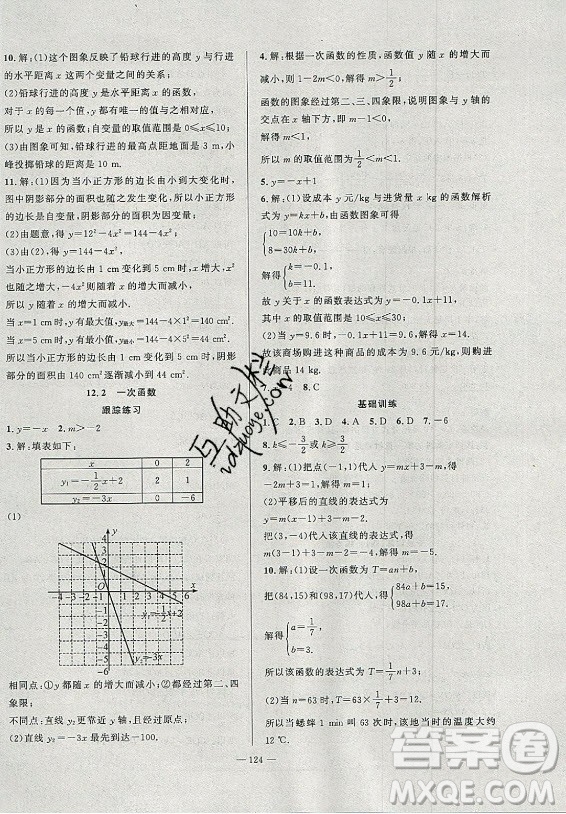 10.解:(1)这个图象反映了铅球行进的高度 y 与行进
的水平距离 x 这两个变量之间的关系;
(2)铅球行进的高度 y 与铅球行进的水平距离 x,
对于 x 的每一个值,y 都有唯一的值与之相对应,
所以 y 是 x 的函数;自变量的取值范围是 0≤x≤10;
(3)由图象可知,铅球行进的最高点距地面 3 m,小
峰投掷铅球的距离是 10 m.
11.解:(1)因为当小正方形的边长由小到大变化时,
图中阴影部分的面积也随之发生变化,所以小正方
形的边长是自变量,阴影部分的面积是因变量;
(2)由题意,得 y=12²-4x²=144-4x²;
(3)由(2),得 y=144-4x²,
当小正方形的边长由 1 cm 变化到 5 cm 时,x 增大,x²
也随之增大,-4x² 则随着 x 的增大而减小,
所以 y 随着 x 的增大而减小.
当 x=1 cm 时,y 有最大值,y最大=144-4×1²=140(cm²).
当 x=5 cm 时,y 有最小值,y最小=144-4×5²=44(cm²).
所以当小正方形的边长由 1 cm 变化到 5 cm 时,阴
影部分的面积由 140 cm² 逐渐减小到 44 cm².
12.2 一次函数
跟踪练习
1.y=-x 2.m>-2
3.解:填表如下:
x 0 2
y₁=-1/2x+2 2 1
y₂=-3x 0 -6
(1)
y
4
3
2
1
-4 -3 -2 -1 O 1 2 3 4 5 6 x
-1
-2
-3
-4
-5
-6
y₁=-1/2x+2
y₂=-3x
相同点:①y 都随 x 的增大而减小;②都经过第二、四
象限;
不同点:y₂ 更靠近 y 轴,y₁ 与 y 轴的交点在原点上方.
(2)直线 y₂=-3x 最先到达-100.
4.解:根据一次函数的性质,函数值 y 随 x 的增大而
减小,则 1-2m<0,解得 m>1/2;
函数的图象经过第二、三、四象限,说明图象与 y 轴的
交点在 x 轴下方,即 m-1<0,
解得 m<1,
所以 m 的取值范围为 1/2<m<1.
5.y=-x+1
6.解:(1)设成本 y 元/kg 与进货量 x kg 的函数解析
式为 y=kx+b,由函数图象可得
{10=10k+b,
8=30k+b,
解得{k=-0.1,
b=11.
故 y 关于 x 的函数表达式为 y=-0.1x+11,
其中 x 的取值范围是 10≤x≤30;
(2)当 y=9.6 时,-0.1x+11=9.6,解得 x=14,
故该商场购进这种商品的成本为 9.6 元/kg,则购进
此商品 14 kg.
8.C
基础训练
1.C 2.B 3.A 4.D 5.D 6.D 7.-6
9.解:(1)把点 P(-2,1)代入 y=mx+3-m,得
-2m+3-m=1,
解得 m=2/3;
(2)平移后的直线的表达式为
y=mx+3-m-4,
把(3,-4)代入该直线的表达式,得
3m+3-m-4=-4,解得
10.解:(1)设一次函数为 T=an+b,
把(84,15)和(98,17)代入,得{84a+b=15,
98a+b=17,
解得{a=1/7,
b=3.
所以该函数的表达式为 T=1/7n+3;
(2)当 n=63 时,T=1/7×63+3=12,
所以当蟋蟀 1 min 叫 63 次时,该地当时的温度大约
为 12 ℃.
— 124 —
互助文库
idzuoye.com
答案圈
MXQE.COM